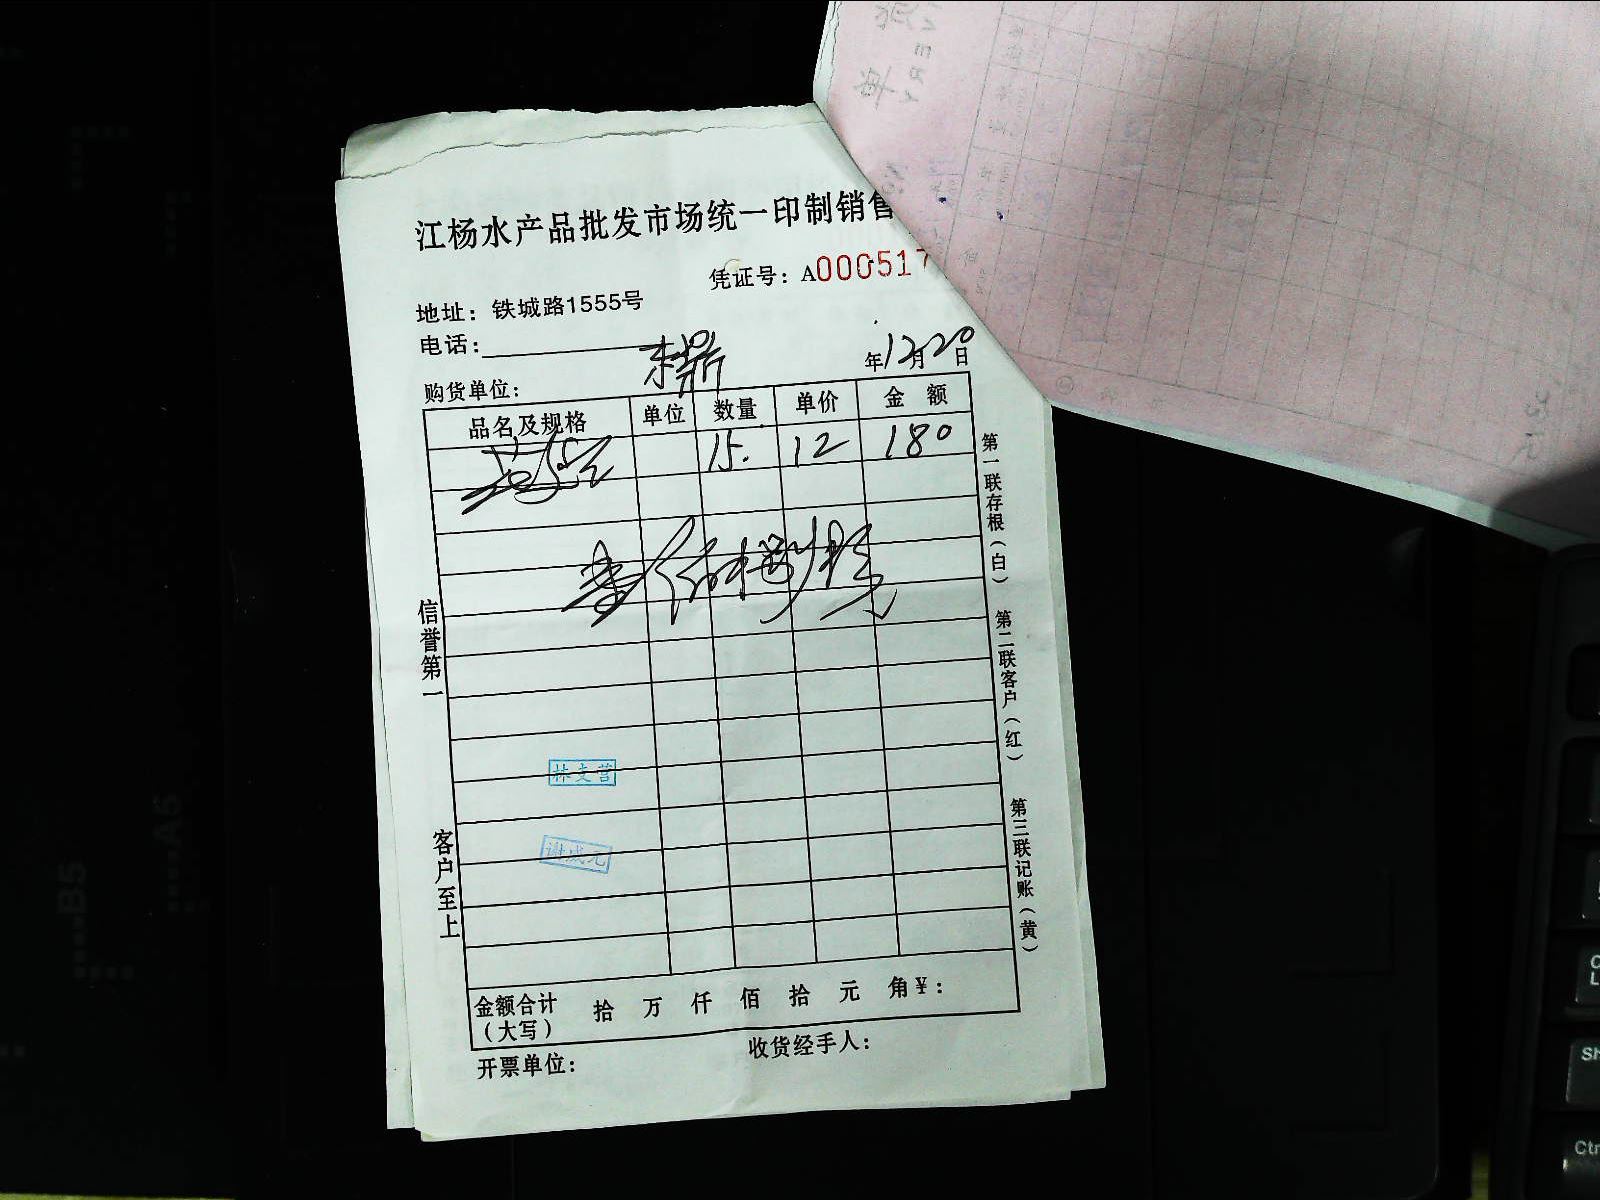 江杨水产品批发市场统一印制销售
凭证号：A000517
地址：铁城路1555号
电话：
年12月20日
购货单位：
品名及规格 单位 数量 单价 金额
15. 12 180
壹佰捌拾
第一联存根（白）
第二联客户（红）
第三联记账（黄）
信誉第一
客户至上
林支营
谢成元
金额合计（大写） 拾 万 仟 佰 拾 元 角￥：
开票单位： 收货经手人：
B5
A5